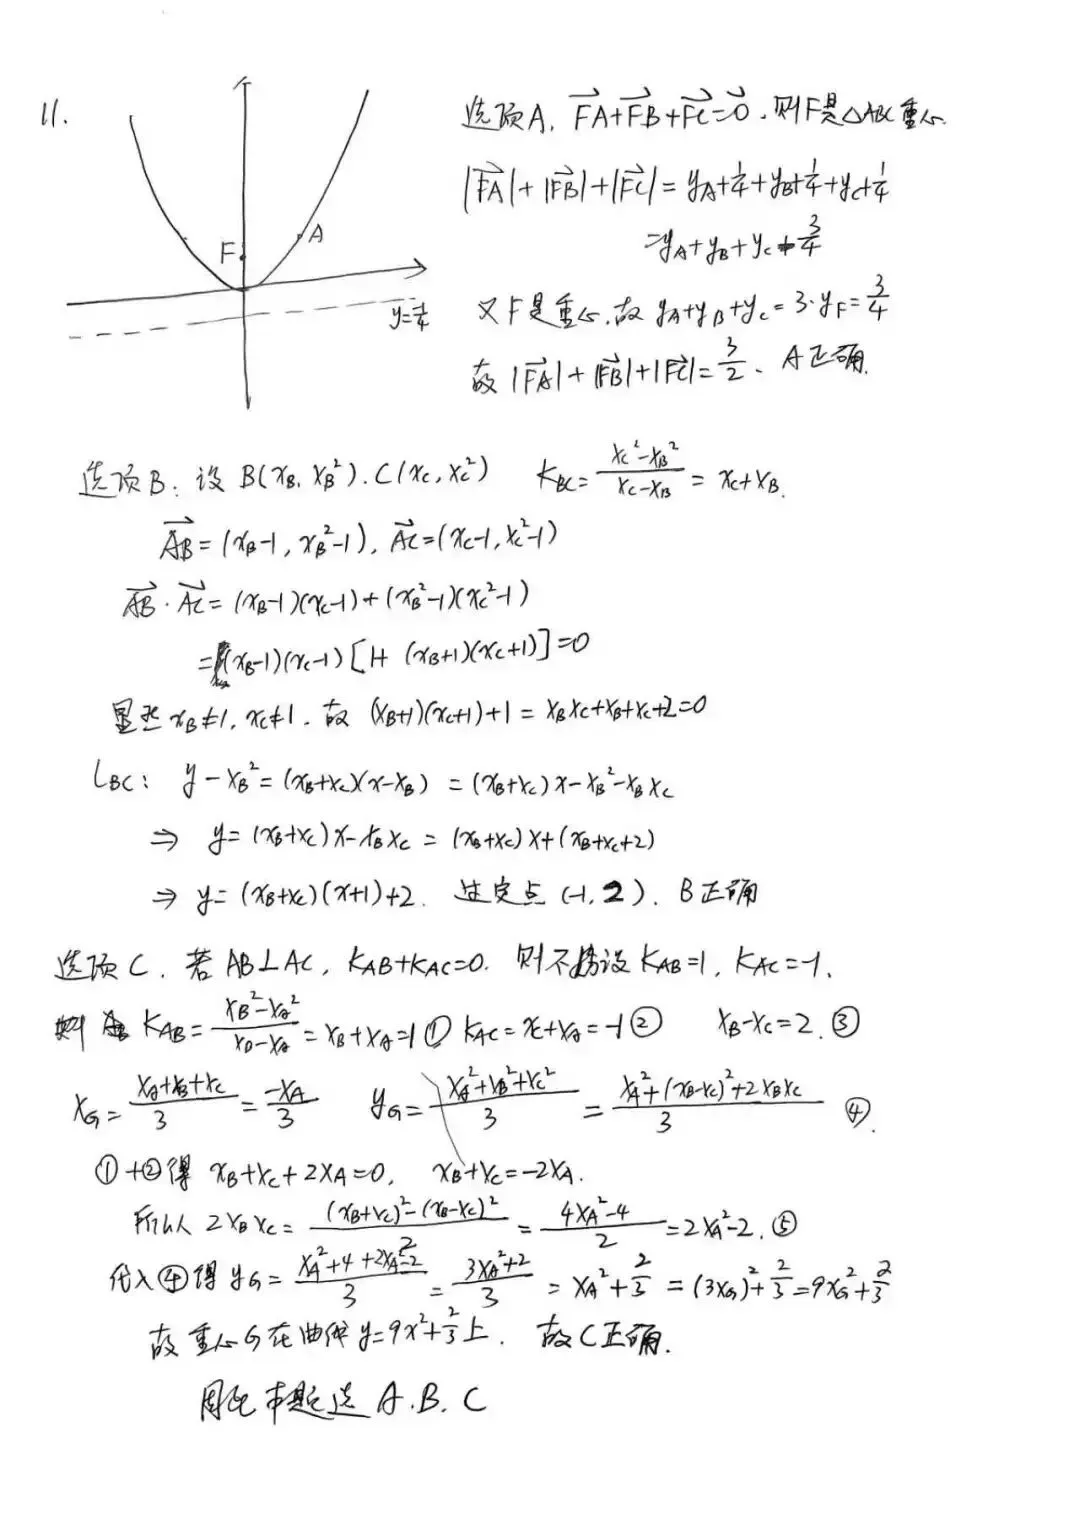 11.
选项A, FA+FB+FC=0, 则F是△ABC重心.
|FA|+|FB|+|FC|=yA+1/4+yB+1/4+yC+1/4
=yA+yB+yC+3/4
F A
y=-1/4
又F是重心,故 yA+yB+yC=3·yF=3/4
故 |FA|+|FB|+|FC|=3/2、A正确.
选项B: 设 B(xB, xB²). C(xC, xC²) KBC=(xC²-xB²)/(xC-xB)=xC+xB.
AB=(xB-1, xB²-1), AC=(xC-1, xC²-1)
AB·AC=(xB-1)(xC-1)+(xB²-1)(xC²-1)
=(xB-1)(xC-1)[1+(xB+1)(xC+1)]=0
显然 xB≠1, xC≠1. 故 (xB+1)(xC+1)+1=xBxC+xB+xC+2=0
LBC: y-xB²=(xB+xC)(x-xB)=(xB+xC)x-xB²-xBxC
⇒ y=(xB+xC)x-xBxC=(xB+xC)x+(xB+xC+2)
⇒ y=(xB+xC)(x+1)+2. 过定点(-1, 2). B正确
选项C. 若AB⊥AC, KAB+KAC=0. 则不妨设KAB=1, KAC=-1.
则 KAB=(xB²-xA²)/(xB-xA)=xB+xA=1① KAC=xC+xA=-1② xB-xC=2.③
xG=(xA+xB+xC)/3=-xA/3 yG=(xA²+xB²+xC²)/3=(xA²+(xB-xC)²+2xBxC)/3 ④.
①+②得 xB+xC+2xA=0, xB+xC=-2xA.
所以 2xBxC=((xB+xC)²-(xB-xC)²)/2=(4xA²-4)/2=2xA²-2.⑤
代入④得 yG=(xA²+4+2xA²-2)/3=(3xA²+2)/3=xA²+2/3=(3xG)²+2/3=9xG²+2/3
故重心G在曲线y=9x²+2/3上. 故C正确.
因此本题选 A.B.C